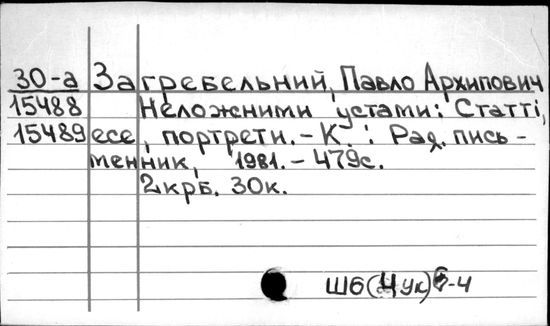 30-а Загребельний, Павло Архипович
15488 Неложними устами: Статті,
15489 есе, портрети. - К. : Рад. пись-
менник, 1981. - 479с.
2крб. 30к.
Ш6(4Ук)6-4